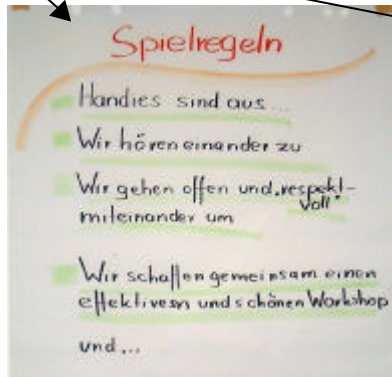 Spielregeln
Handies sind aus...
Wir hören einander zu
Wir gehen offen und "respekt-
voll"
miteinander um
Wir schaffen gemeinsam einen
effektiven und schönen Workshop
und...